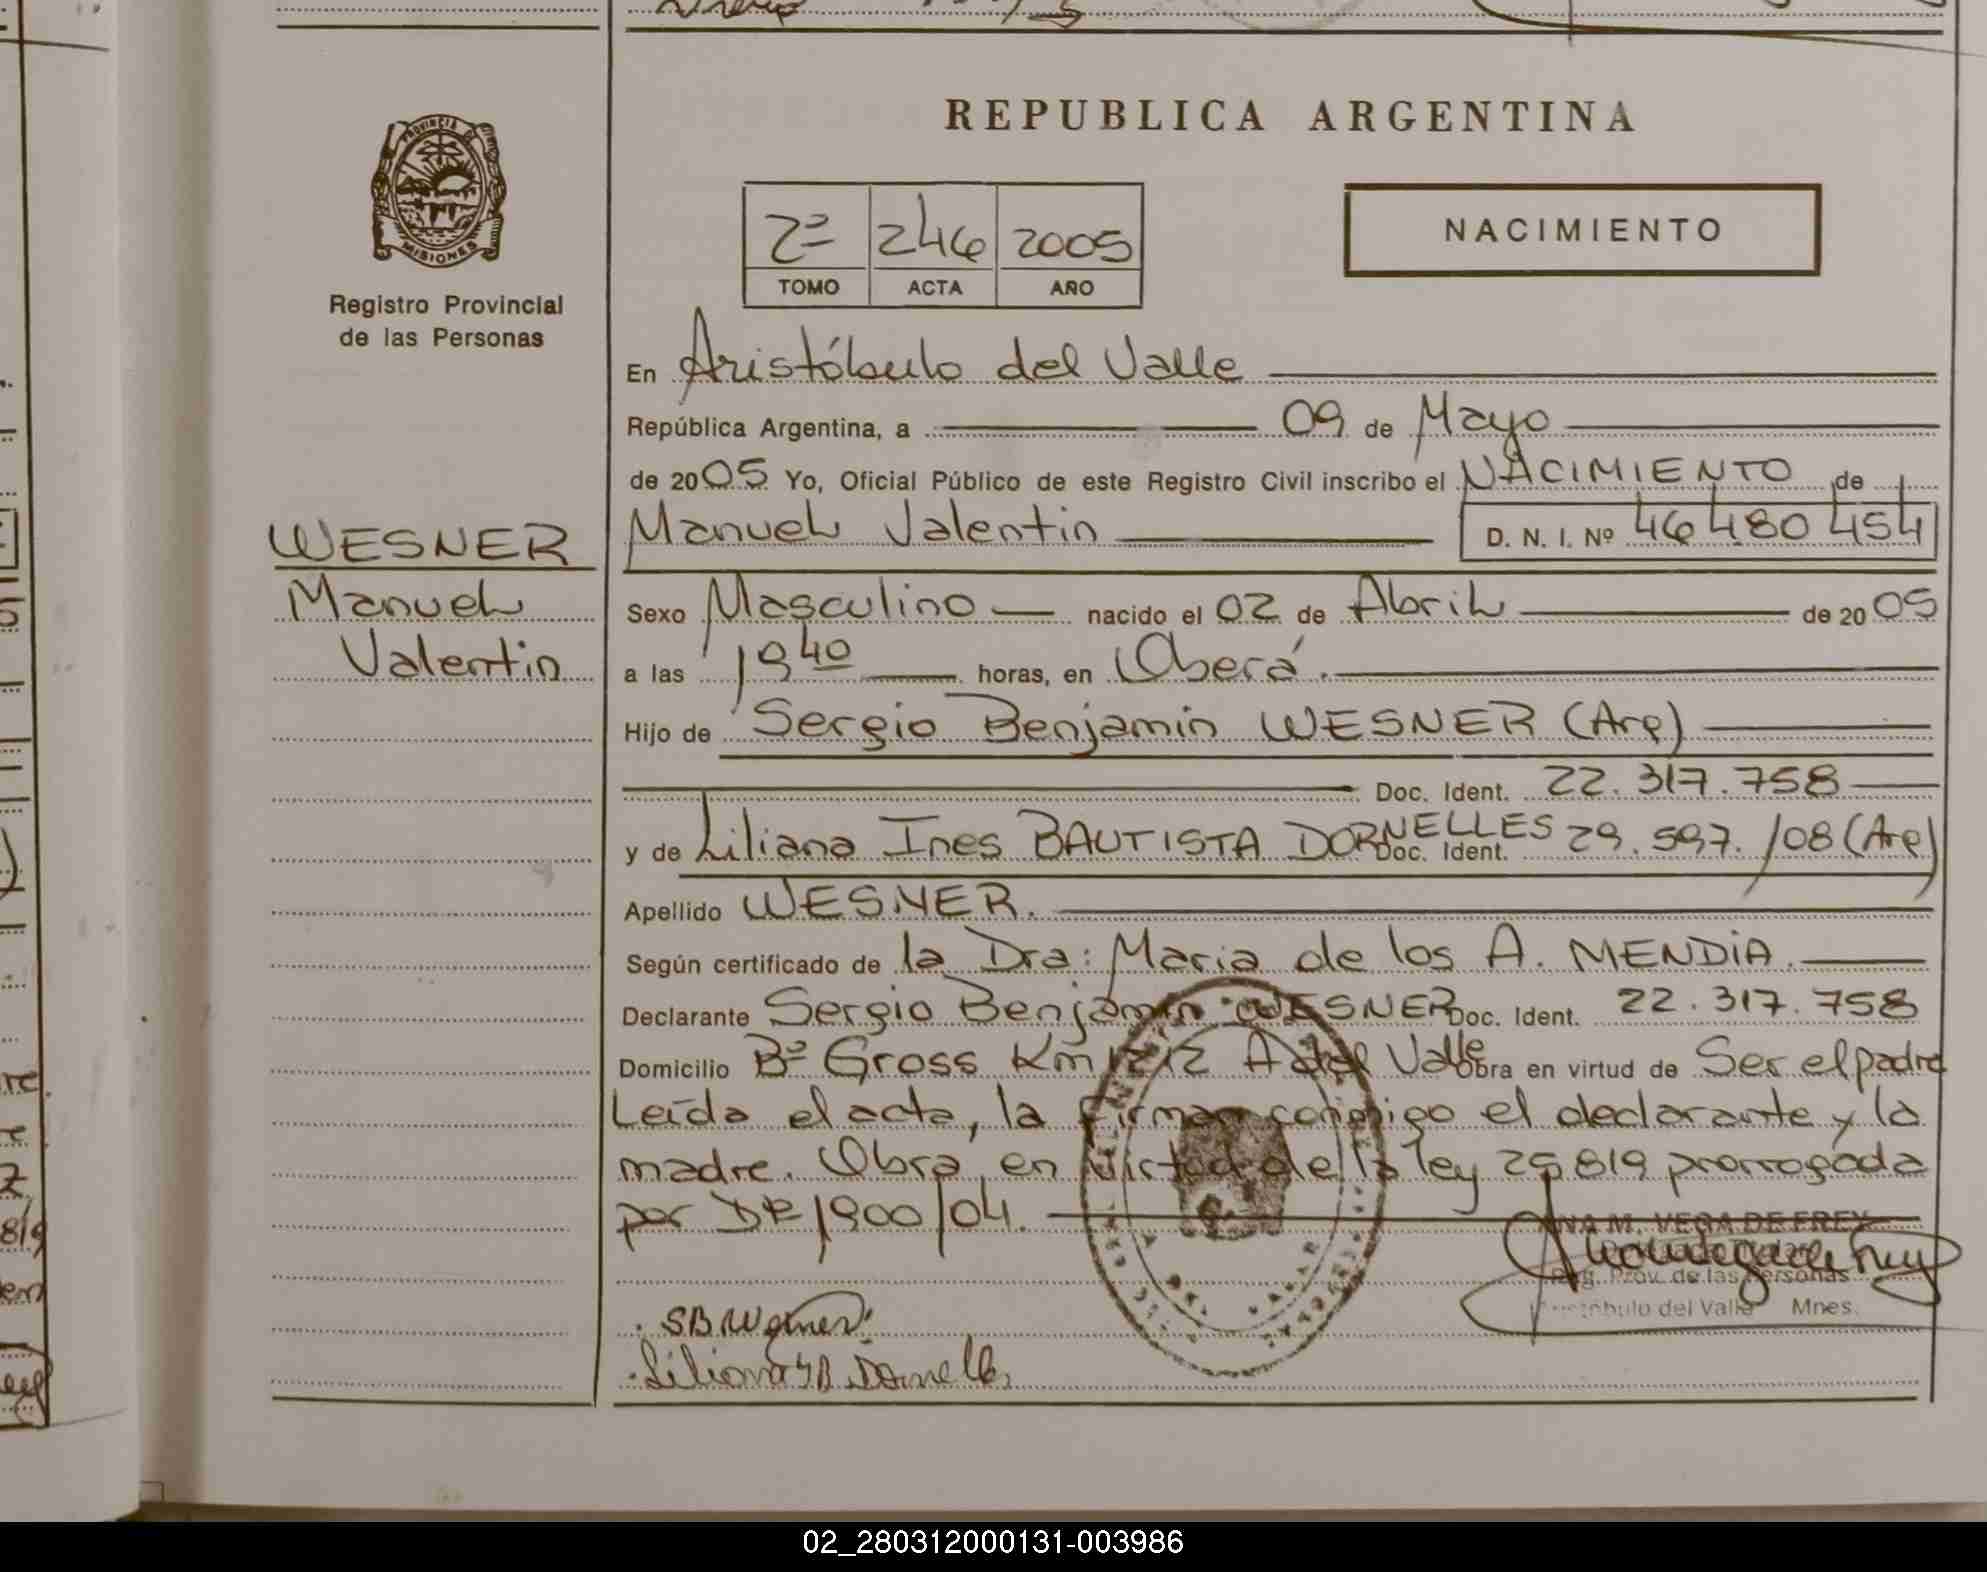 REPUBLICA ARGENTINA
PROVINCIA DE
MISIONES
Registro Provincial
de las Personas
2º 246 2005
TOMO ACTA AÑO
NACIMIENTO
En Aristóbulo del Valle
República Argentina, a 09 de Mayo
de 2005 Yo, Oficial Público de este Registro Civil inscribo el NACIMIENTO de
WESNER
Manuel
Valentin
Manuel Valentin D. N. I. Nº 46 480 454
Sexo Masculino nacido el 02 de Abril de 2005
a las 19 40 horas, en Oberá.
Hijo de Sergio Benjamin WESNER (Arg)
Doc. Ident. 22.317.758
y de Liliana Ines BAUTISTA DORNELLES Doc. Ident. 29.597.108 (Arg)
Apellido WESNER.
Según certificado de la Dra: Maria de los A. MENDIA.
Declarante Sergio Benjamin WESNER Doc. Ident. 22.317.758
Domicilio Bº Gross Km 1212 A del Valle Obra en virtud de Ser el padre
Leída el acta, la firman conmigo el declarante y la
madre. Obra en virtud de la ley 25.819 prorrogada
por DR 1900/04.
ANA M. VEGA DE FREY
Reg. Prov. de las Personas
Aristóbulo del Valle Mnes.
SBWesner
Liliana I B Dornelles
02_280312000131-003986